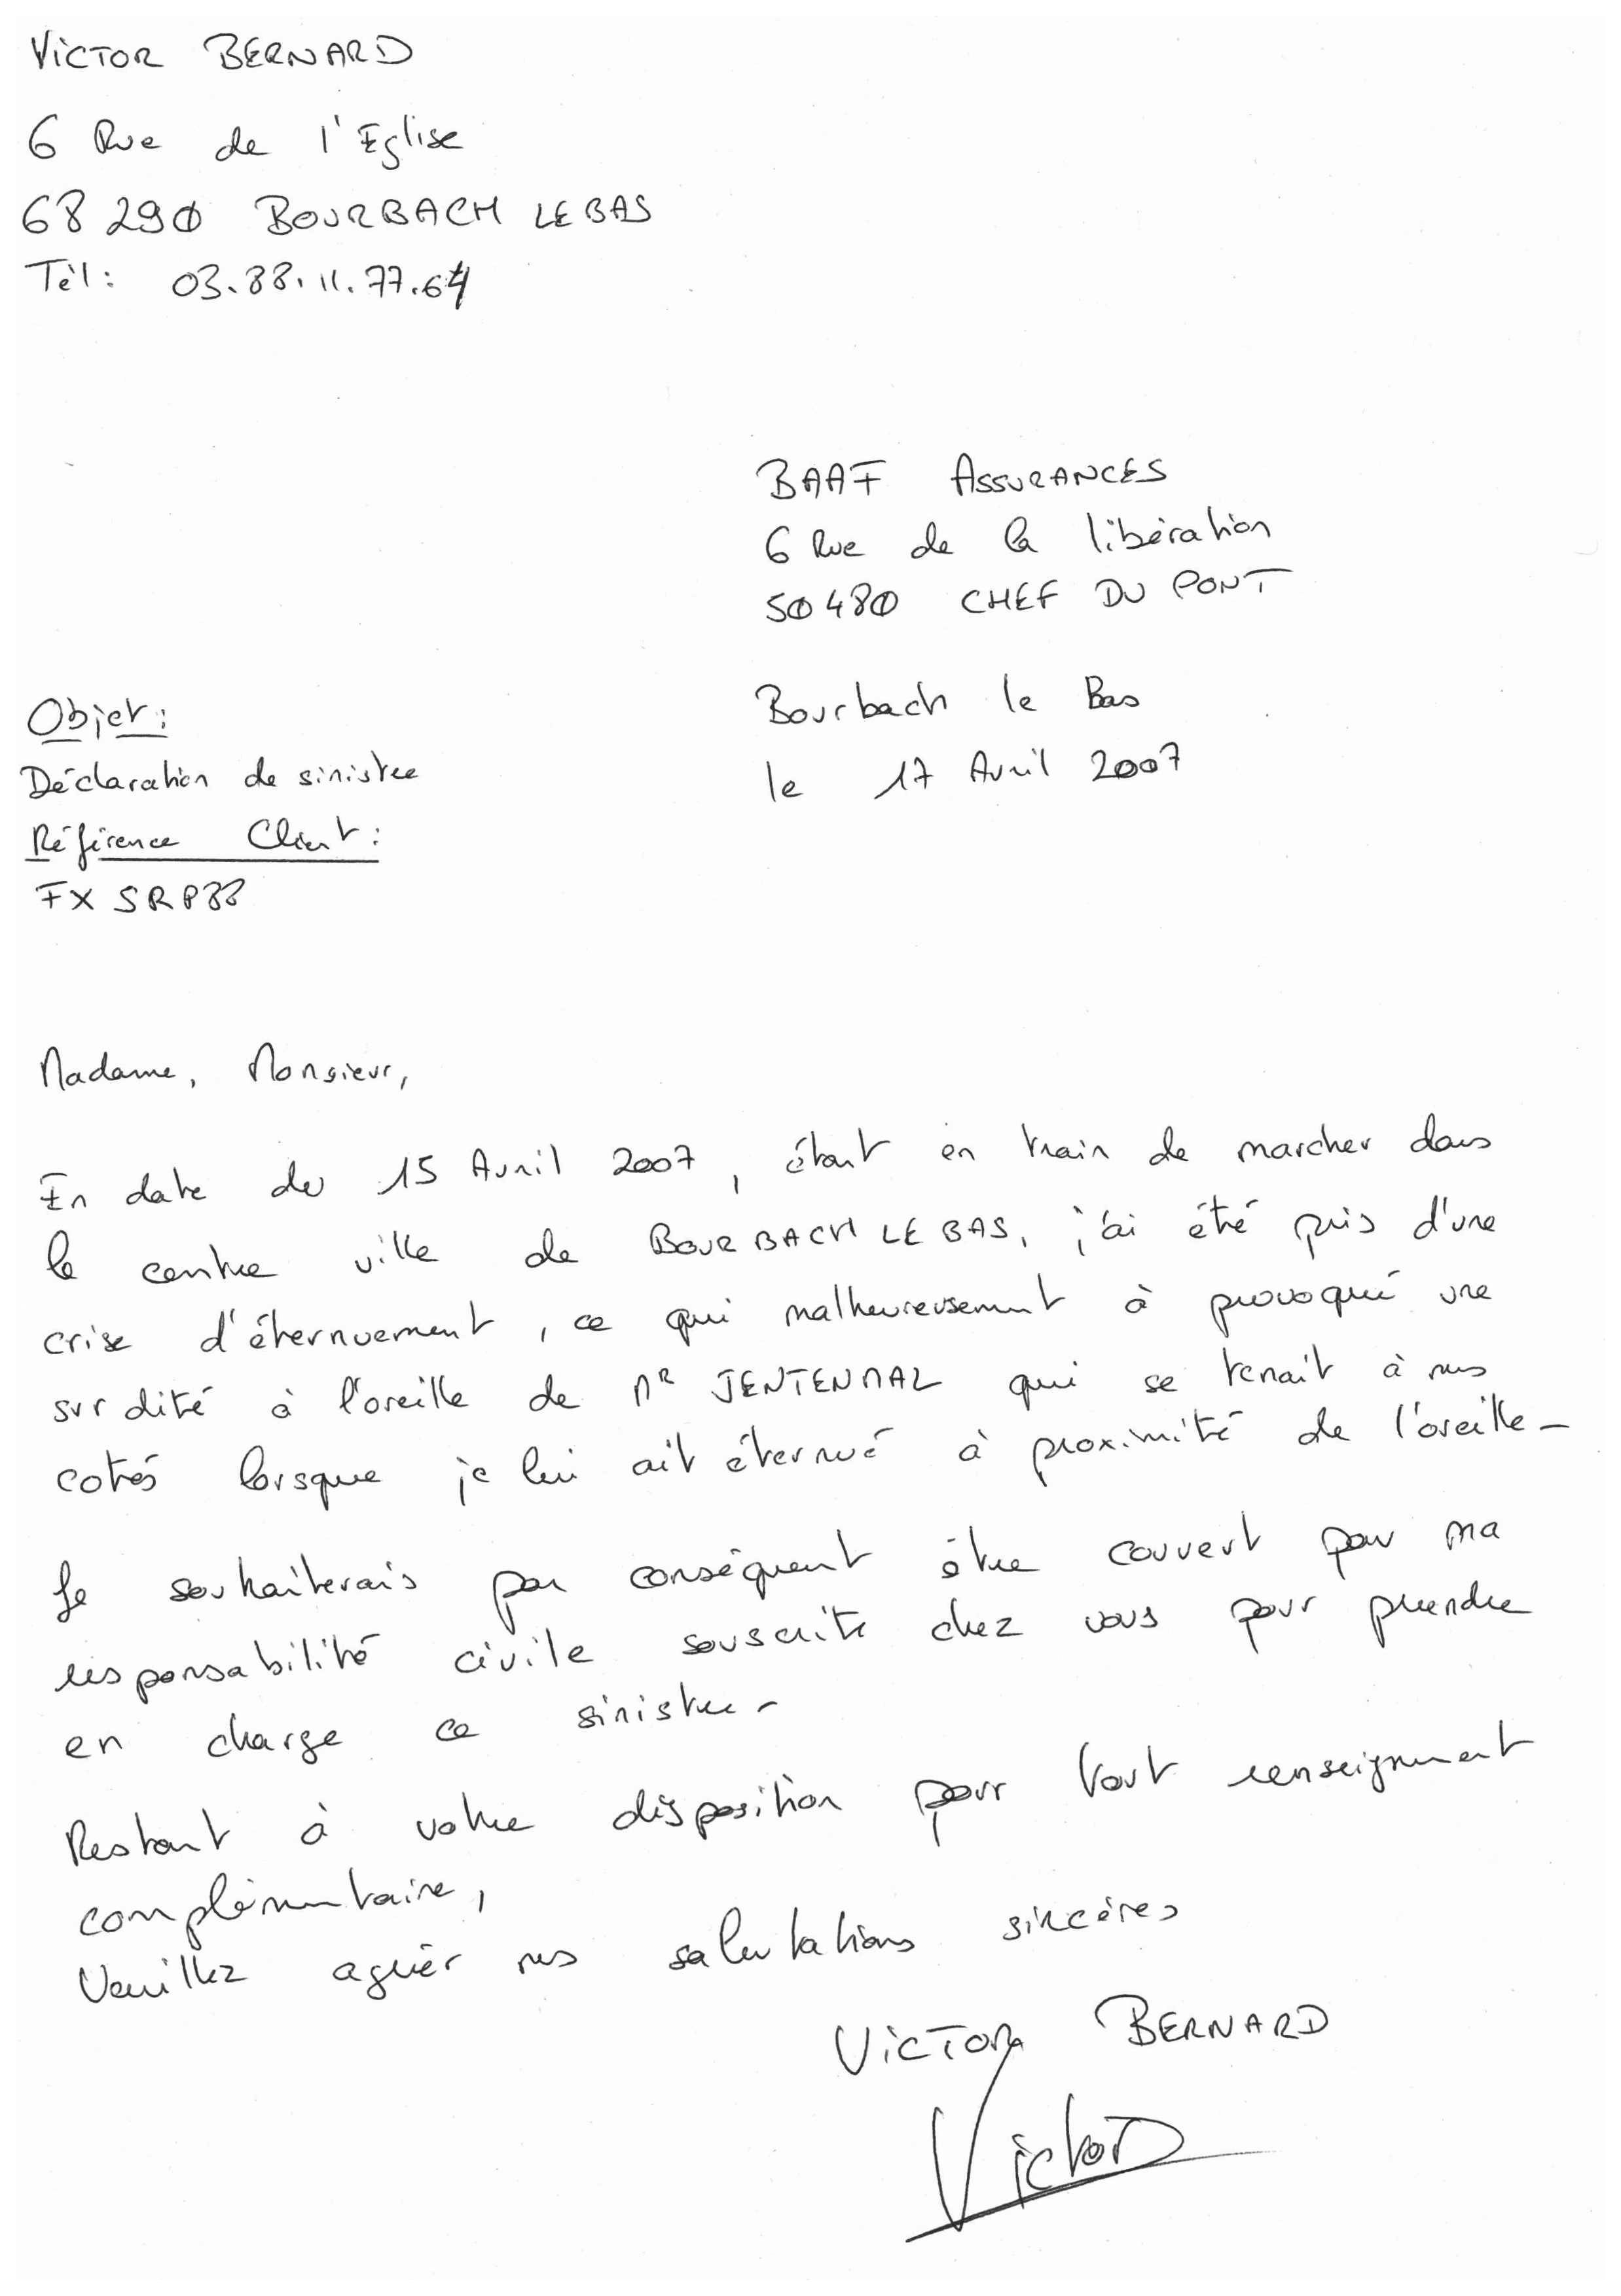 VICTOR BERNARD
6 Rue de l'Eglise
68 290 BOURBACH LE BAS
Tèl: 03.88.11.77.64
BAAF ASSURANCES
6 Rue de la libération
50480 CHEF DU PONT
Bourbach le Bas
le 17 Avril 2007
Objet:
Déclaration de sinistre
Référence Client:
FX SRP88
Madame, Monsieur,
En date du 15 Avril 2007, étant en train de marcher dans
le centre ville de BOURBACH LE BAS, j'ai été pris d'une
crise d'éternuement, ce qui malheureusement à provoqué une
surdité à l'oreille de MR JENTENMAL qui se tenait à mes
cotés lorsque je lui ait éternué à proximité de l'oreille-
Je souhaiterais par conséquent être couvert par ma
responsabilité civile souscrite chez vous pour prendre
en charge ce sinistre-
Restant à votre disposition pour tout renseignement
complémentaire,
Veuillez agréer mes salutations sincères
VICTOR BERNARD
Victor